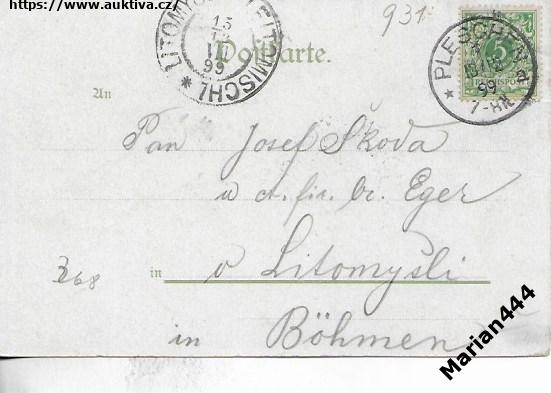 https://www.auktiva.cz/
931.
LITOMYŠL LEITOMISCHL
13
VII
99
Postkarte.
PLESCHEN
99
7-8N
5
REICHSPOST
An
Pan Josef Škoda
u ct. fir. br. Eger
368
in v Litomyšli
in Böhmen
Marian444